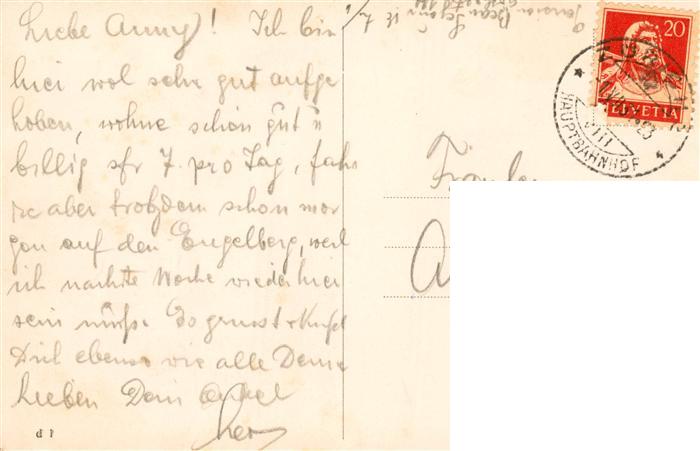 Liebe Anny! Ich bin
hier wol sehr gut aufge
hoben, wohne schön gut u
billig sfr 7. pro Tag, fah
re aber trotzdem schon mor
gen auf den Engelberg, weil
ich nächste Woche wieder hier
sein muß. Es grüsst + küsst
Dich ebenso wie alle Deine
Lieben Dein Onkel
Pension Beau
20
HELVETIA
HAUPTBAHNHOF
VIII
Fräulein